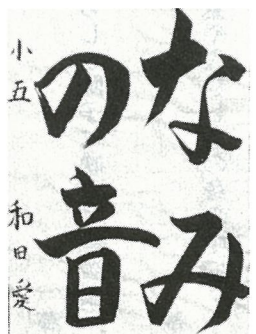 なみ
の音
小五 和日愛